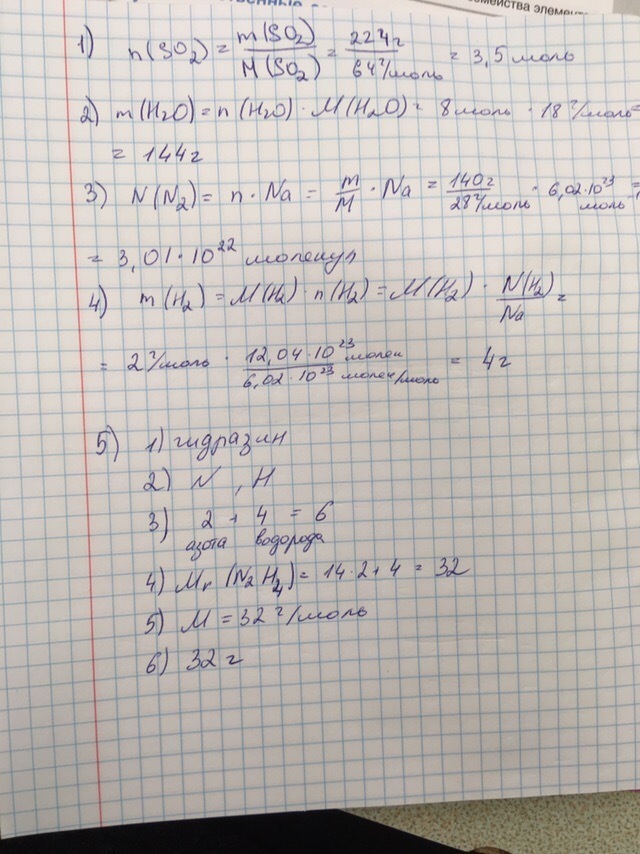 семейства элемен
1) n(SO₂) = m(SO₂)/M(SO₂) = 224г/64г/моль = 3,5 моль
2) m(H₂O) = n(H₂O) · M(H₂O) = 8 моль · 18 г/моль =
= 144г
3) N(N₂) = n · Na = m/M · Na = 140г/28г/моль · 6,02·10²³ моль =
= 3,01·10²² молекул
4) m(H₂) = M(H₂) · n(H₂) = M(H₂) · N(H₂)/Na =
= 2 г/моль · 12,04·10²³ молек/6,02·10²³ молек/моль = 4г
5) 1) гидразин
2) N , H
3) 2 + 4 = 6
азота водорода
4) Mr (N₂H₄) = 14·2+4 = 32
5) M = 32 г/моль
6) 32 г